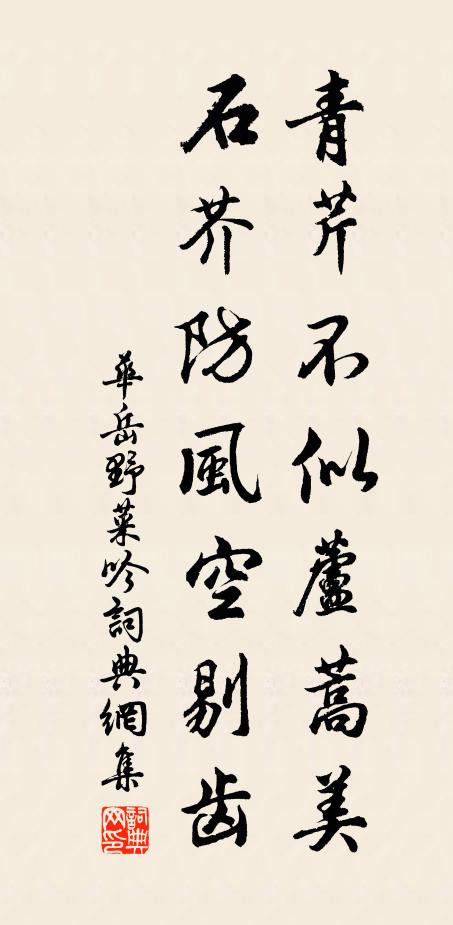 青芹不似蘆蒿美
石芥防風空剔齿
華岳野菜吟詞典網集
詞典
网印